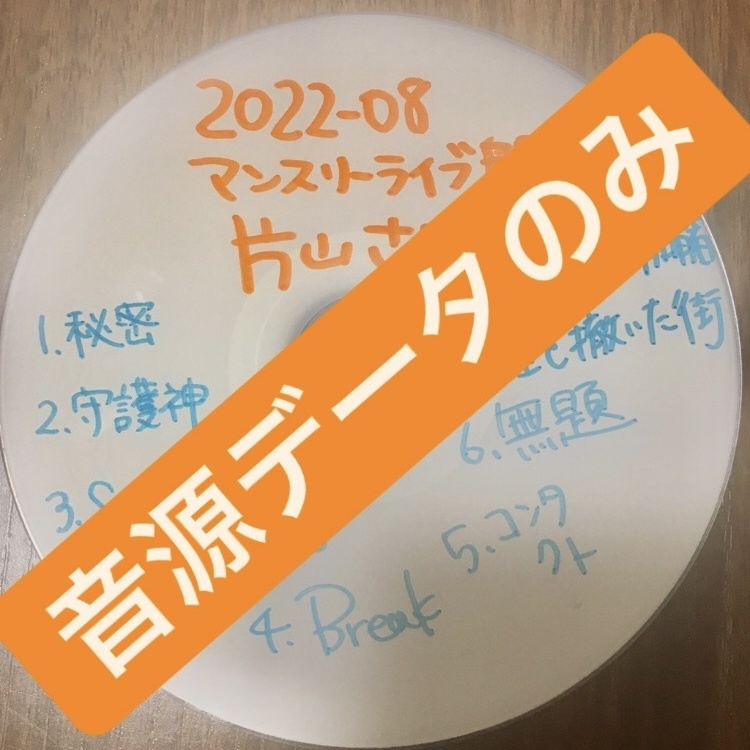 2022-08
マンスリーライブ
片山さ
1.秘密
2.守護神
3.
4.Break
5.コンタ
クト
6.無題
撒いた街
音源データのみ